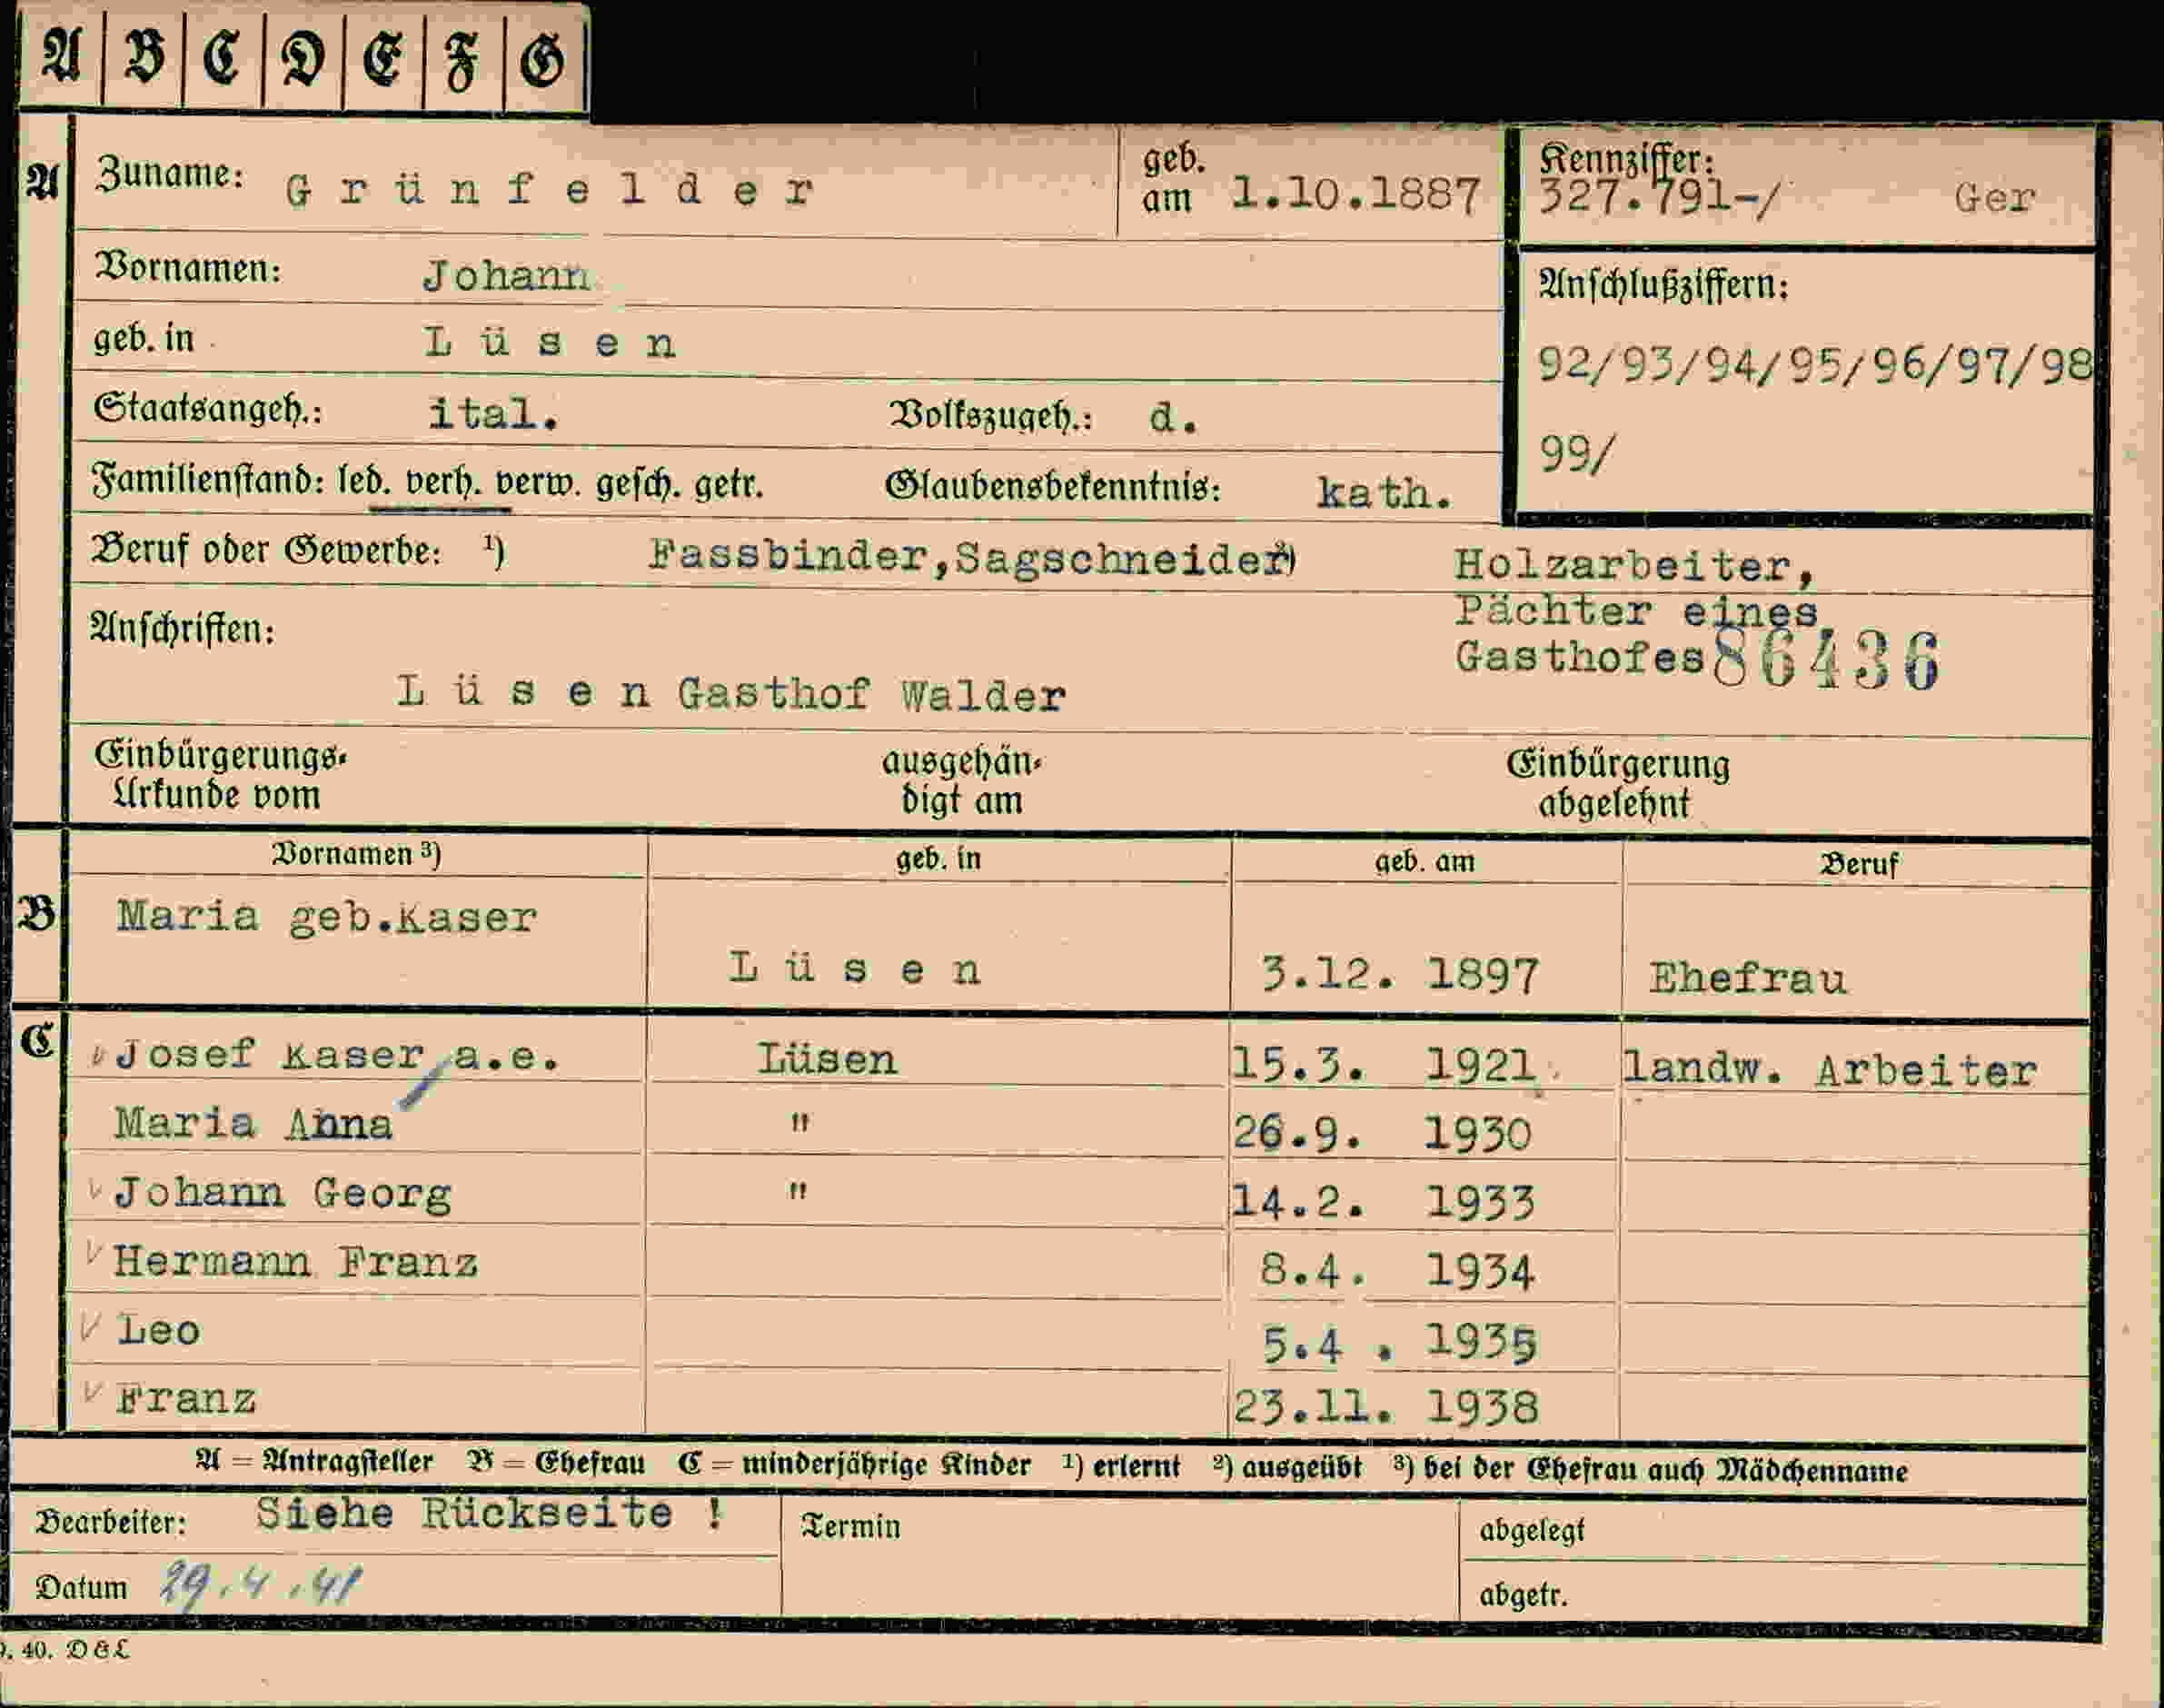 A B C D E F G
A Zuname: Grünfelder geb. am 1.10.1887 Kennziffer: 327.791-/ Ger
Vornamen: Johann
Anschlußziffern:
geb. in Lüsen
92/93/94/95/96/97/98
Staatsangeh.: ital. Volkszugeh.: d.
99/
Familienstand: led. verh. verw. gesch. getr. Glaubensbekenntnis: kath.
Beruf oder Gewerbe: ¹) Fassbinder,Sagschneider ²) Holzarbeiter,
Pächter eines
Anschriften:
Gasthofes 86436
Lüsen Gasthof Walder
Einbürgerungs- ausgehän- Einbürgerung
Urkunde vom digt am abgelehnt
Vornamen ³) geb. in geb. am Beruf
B Maria geb.Kaser
Lüsen 3.12. 1897 Ehefrau
C Josef Kaser a.e. Lüsen 15.3. 1921 landw. Arbeiter
Maria Anna " 26.9. 1930
Johann Georg " 14.2. 1933
Hermann Franz 8.4. 1934
Leo 5.4 . 1935
Franz 23.11. 1938
A = Antragsteller B = Ehefrau C = minderjährige Kinder ¹) erlernt ²) ausgeübt ³) bei der Ehefrau auch Mädchenname
Bearbeiter: Siehe Rückseite ! Termin abgelegt
Datum 29.4.41 abgetr.
. 40. D&L